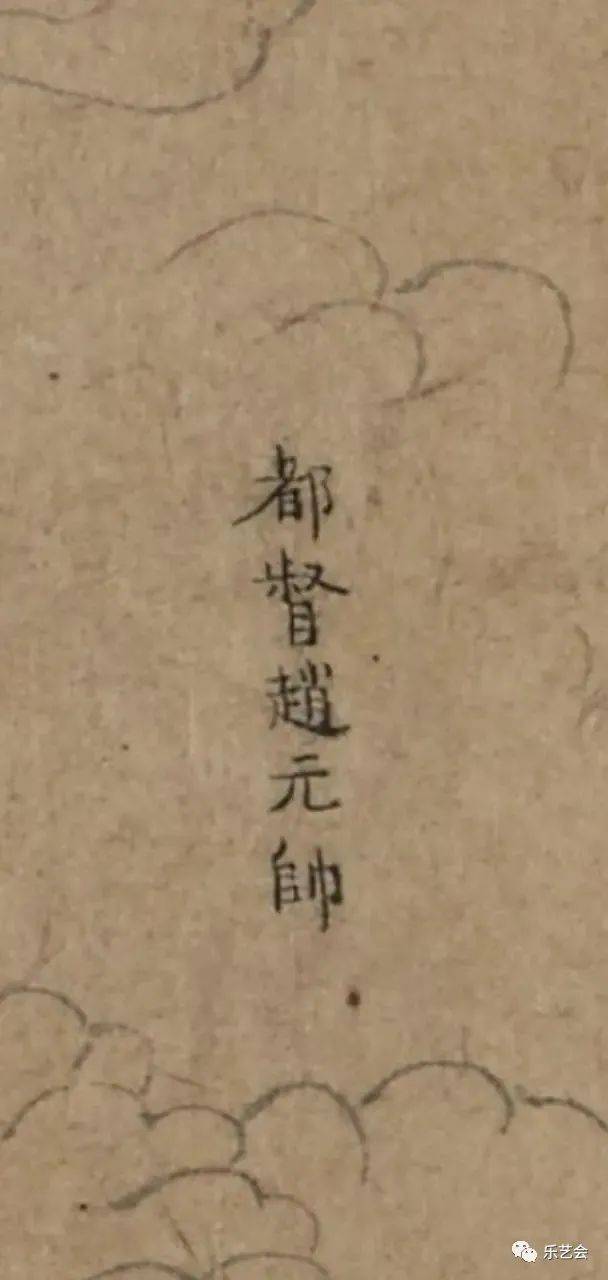 都督趙元帥
乐艺会